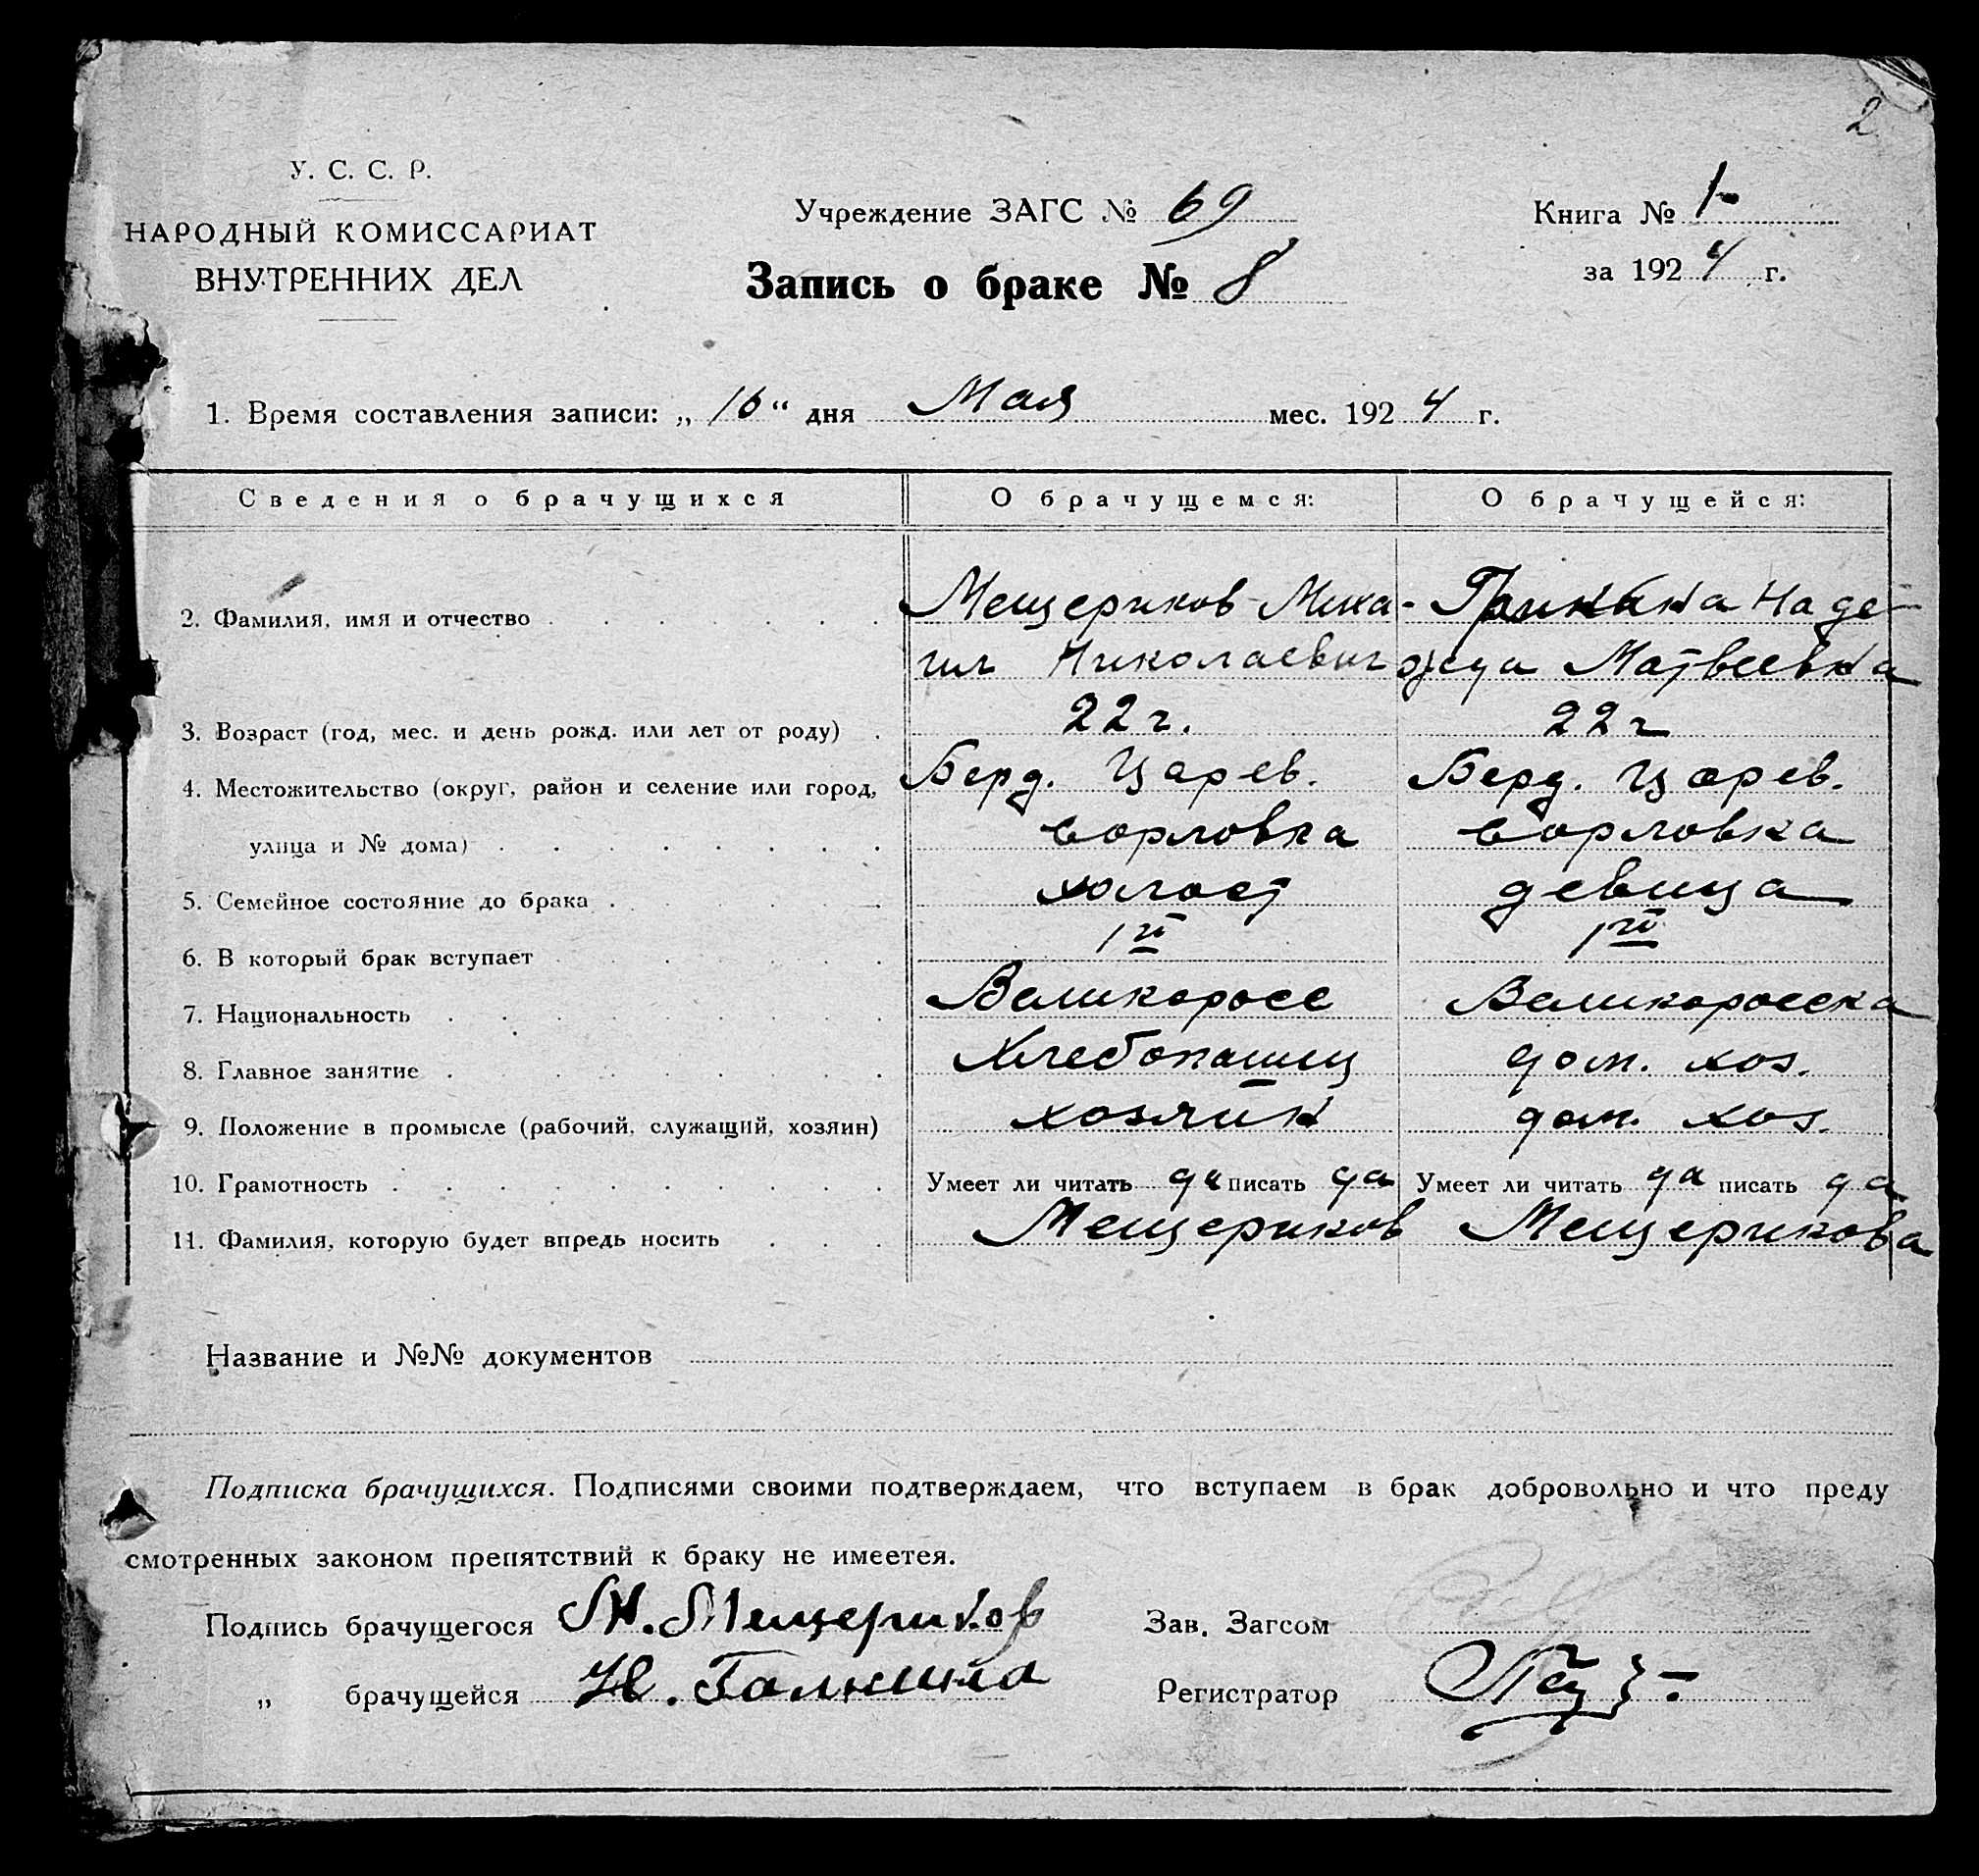 2
У. С. С. Р.
НАРОДНЫЙ КОМИССАРИАТ
ВНУТРЕННИХ ДЕЛ
Учреждение ЗАГС № 69
Книга № 1
Запись о браке № 8
за 1924 г.
1. Время составления записи: „16“ дня Мая мес. 1924 г.
Сведения о брачущихся О брачущемся: О брачущейся:
2. Фамилия, имя и отчество Мещериков Миха- Наде-
ил Николаевич жда Матвеевна
3. Возраст (год, мес. и день рожд. или лет от роду) 22 г. 22 г
4. Местожительство (округ, район и селение или город, Берд. Царев. Берд. Царев.
улица и № дома)
5. Семейное состояние до брака холост девица
6. В который брак вступает 1й 1й
7. Национальность Великоросс Великоросска
8. Главное занятие Хлебопашец дом. хоз.
9. Положение в промысле (рабочий, служащий, хозяин) хозяин дом. хоз.
10. Грамотность Умеет ли читать да писать да Умеет ли читать да писать да
11. Фамилия, которую будет впредь носить Мещериков Мещерикова
Название и №№ документов
Подписка брачущихся. Подписями своими подтверждаем, что вступаем в брак добровольно и что преду
смотренных законом препятствий к браку не имеетея.
Подпись брачущегося М. Мещериков Зав. Загсом
„ брачущейся Н. Регистратор